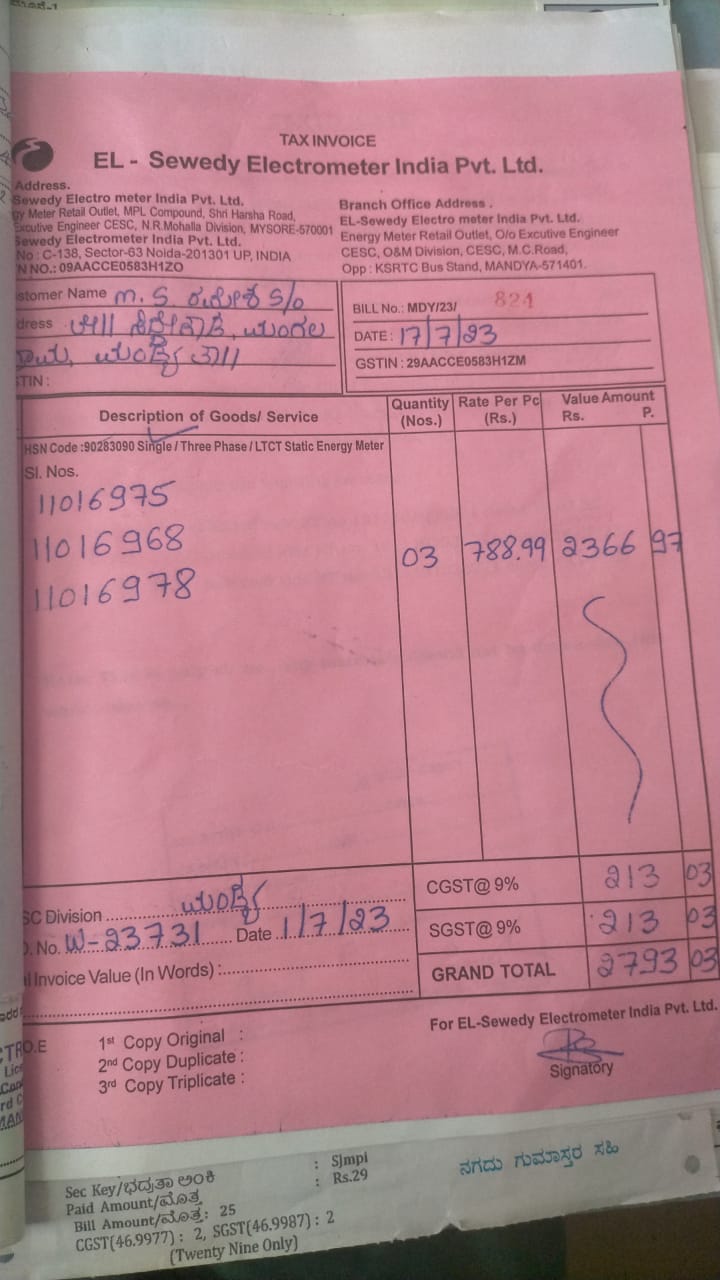 TAX INVOICE
EL - Sewedy Electrometer India Pvt. Ltd.
Address.
Sewedy Electro meter India Pvt. Ltd.
gy Meter Retail Outlet, MPL Compound, Shri Harsha Road,
Excutive Engineer CESC, N.R.Mohalla Division, MYSORE-570001
Sewedy Electrometer India Pvt. Ltd.
No : C-138, Sector-63 Noida-201301 UP, INDIA
N NO.: 09AACCE0583H1ZO
Branch Office Address .
EL-Sewedy Electro meter India Pvt. Ltd.
Energy Meter Retail Outlet, O/o Excutive Engineer
CESC, O&M Division, CESC, M.C.Road,
Opp : KSRTC Bus Stand, MANDYA-571401.
stomer Name M. S. S/o
dress
ಮದ್ದೂರು ತಾ||
STIN :
BILL No.: MDY/23/ 821
DATE : 17/7/23
GSTIN : 29AACCE0583H1ZM
Description of Goods/ Service Quantity (Nos.) Rate Per Pc (Rs.) Value Amount Rs. P.
HSN Code :90283090 Single / Three Phase / LTCT Static Energy Meter
Sl. Nos.
11016975
11016968 03 788.99 2366 97
11016978
CGST@ 9% 213 03
SGST@ 9% 213 03
GRAND TOTAL 2793 03
SC Division ಮದ್ದೂರು
. No. W-23731 Date 1/7/23
l Invoice Value (In Words) :
For EL-Sewedy Electrometer India Pvt. Ltd.
Signatory
1st Copy Original :
2nd Copy Duplicate :
3rd Copy Triplicate :
Sec Key/ಭದ್ರತಾ ಅಂಕಿ : Sjmpl
Paid Amount/ಮೊತ್ತ : Rs.29
Bill Amount/ಮೊತ್ತ: 25
CGST(46.9977) : 2, SGST(46.9987) : 2
(Twenty Nine Only)
ನಗದು ಗುಮಾಸ್ತರ ಸಹಿ